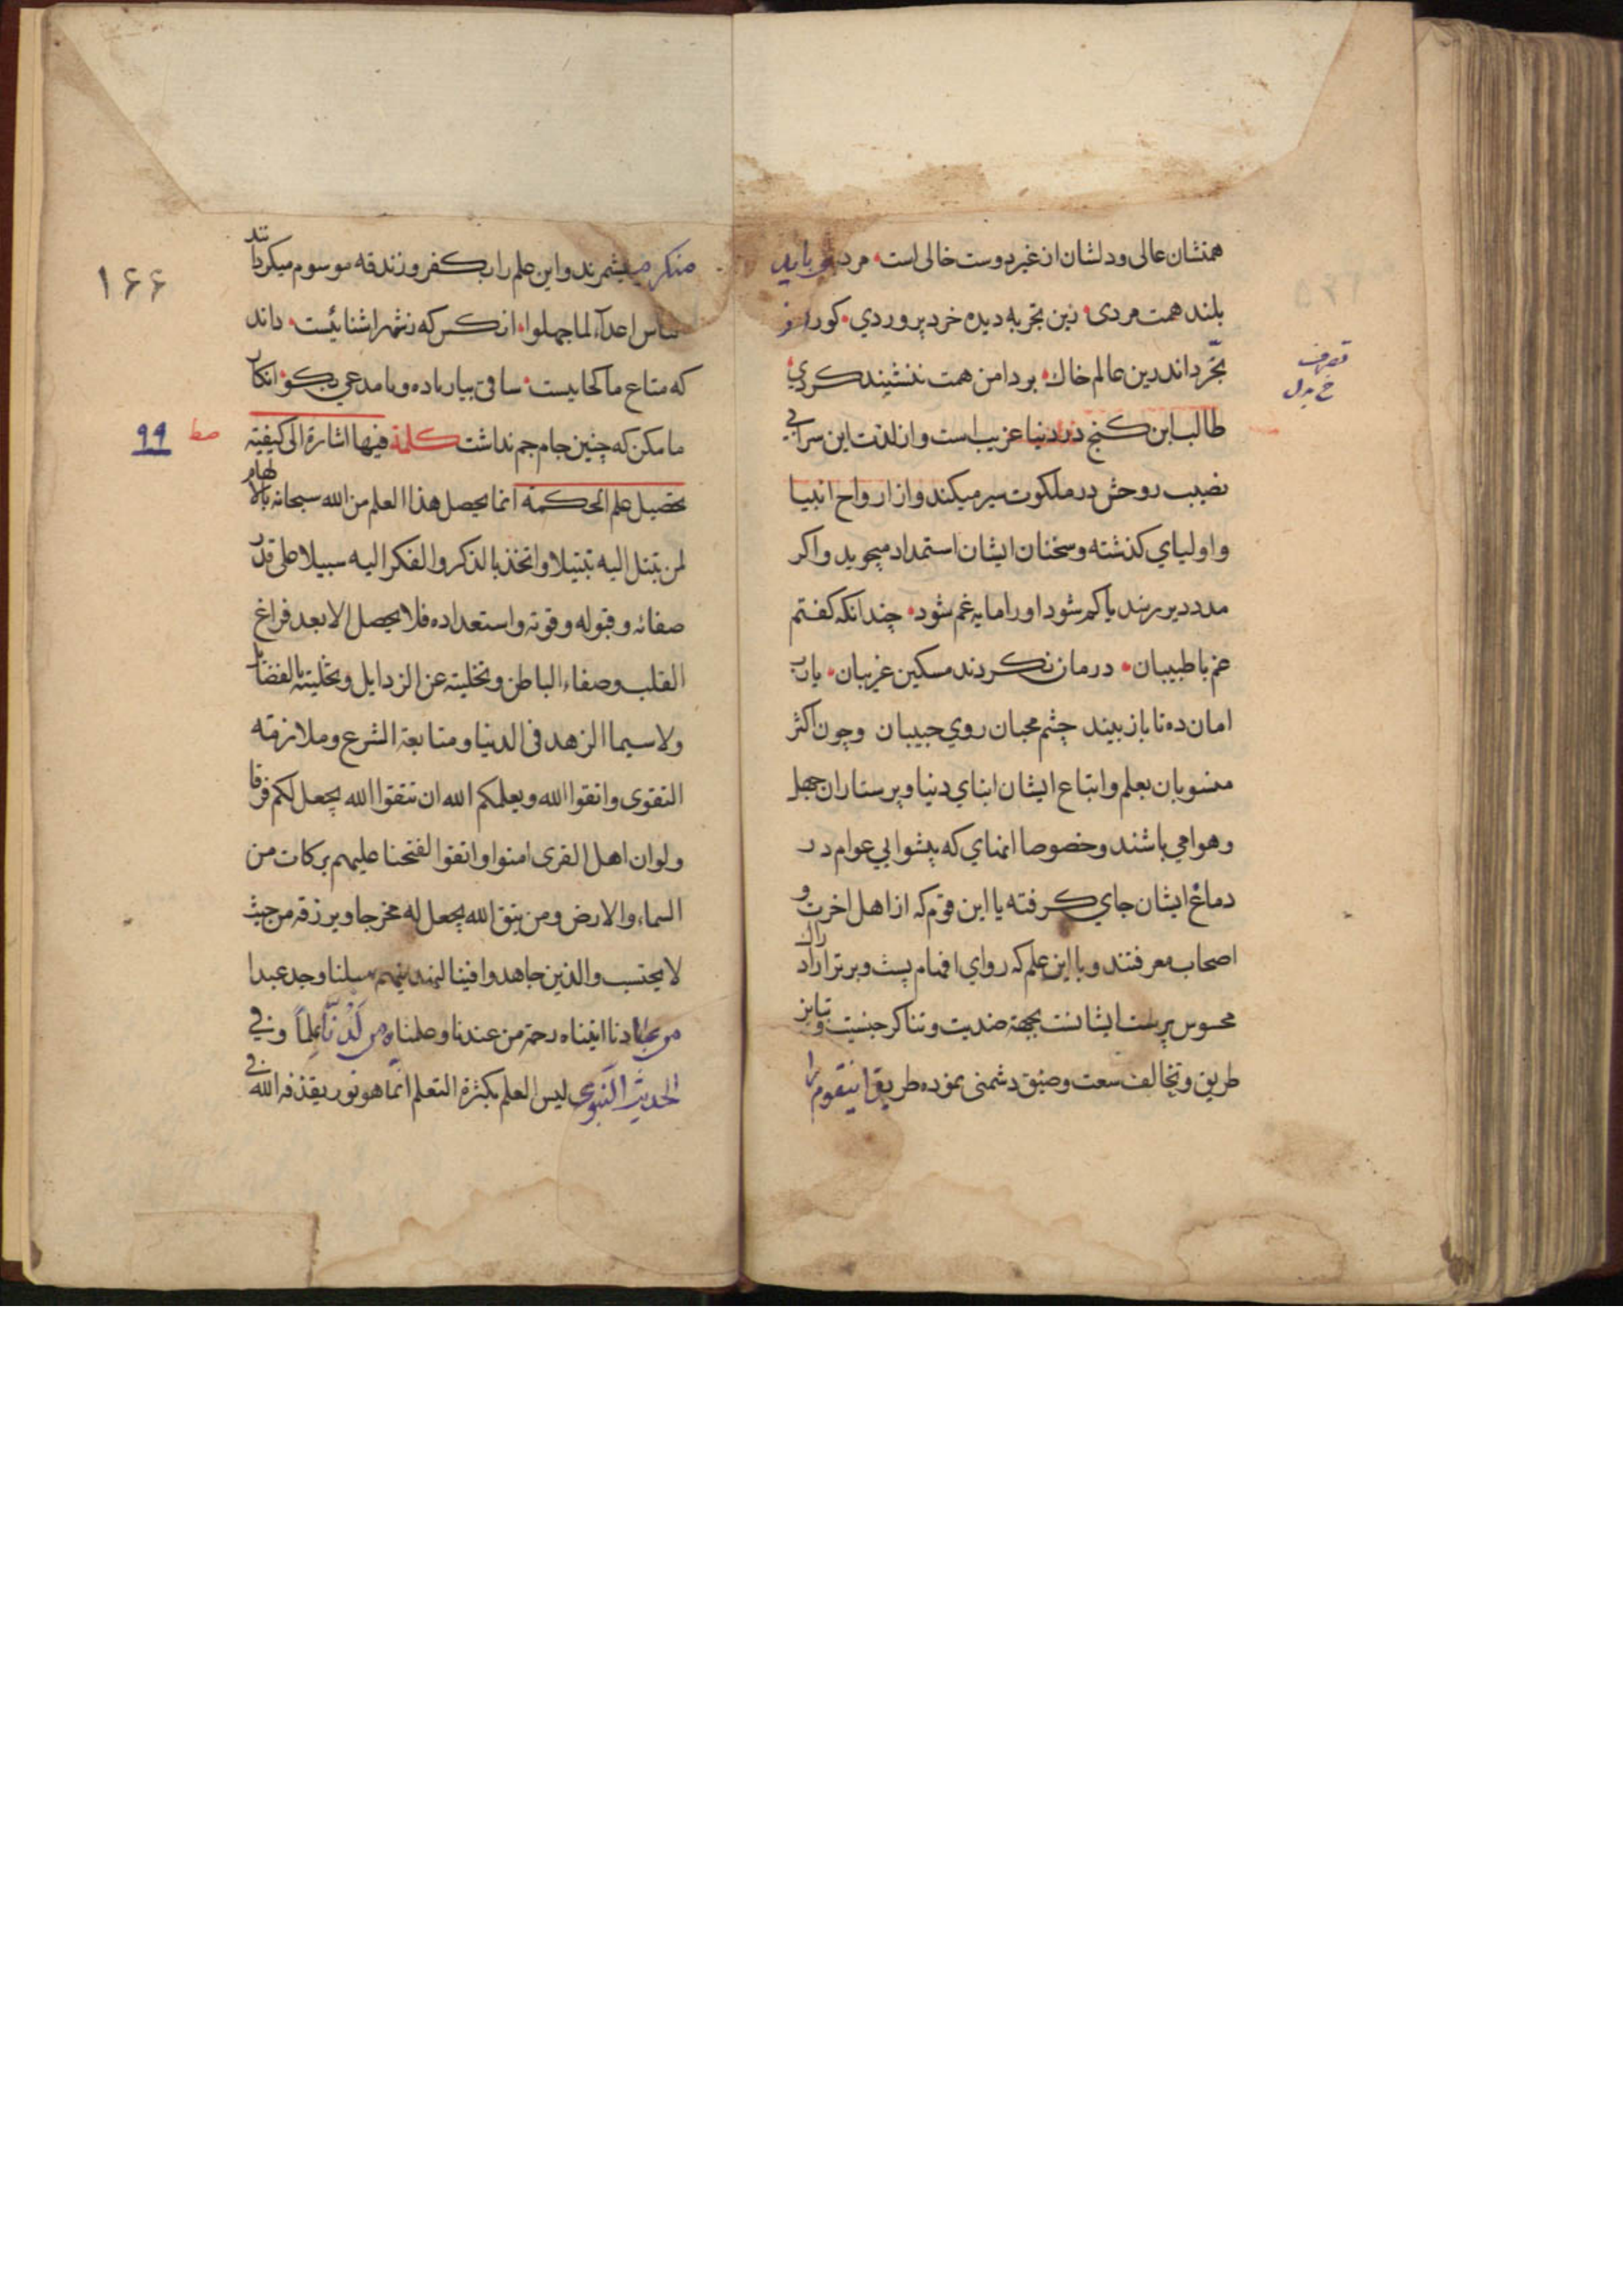 همتشان عالی و دلشان از غیر دوست خالی است مردی باید
بلند همت مردی زین تجربه دیده خرد پروردی کو را ز
تجرد اندرین عالم خاک بر دامن همت ننشیند کردی
طالب این کنج در دنیا غریب است و از لذت این سرا بی
نصیب روحش در ملکوت سیر میکند و از ارواح انبیا
و اولیای کذشته و سخنان ایشان استمداد میجوید و اکر
مدد دیر رسد یا کم شود او را مایه غم شود چندانکه کفتم
غم با طبیبان درمان نکردند مسکین غریبان یارب
امان ده تا باز بیند چشم محبان روی حبیبان و چون اکثر
منسوبان بعلم و اتباع ایشان ابنای دنیا و پرستاران جهل
و هوا می باشند و خصوصا انهای که پیشوایی عوام در
دماغ ایشان جای کرفته با این قوم که از اهل اخرت و
اصحاب معرفتند و با این علم که روای افهام پست و برتر از ادراک
محسوس پرست ایشانست بجهة ضدیت و تناکر جنسیت و تباین
طریق و تخالف سعت و ضیق دشمنی نموده طریق اینقوم را
تصرف
خ بدل
منکر میشمرند و این علم را بکفر و زندقه موسوم میکردانند
الناس اعدآء لما جهلوا انکس که ز شهر اشنائیست داند
که متاع ما کجاییست ساقی بیار باده و با مدعی بکو انکار
ما مکن که چنین جام جم نداشت کلمة فیها اشارة الی کیفیة
تحصیل علم الحکمة انما یحصل هذا العلم من الله سبحانه بالالهام
لمن تبتل الیه تبتیلا و اتخذ بالذکر و الفکر الیه سبیلا علی قدر
صفائه و قبوله و قوته و استعداده فلا یحصل الا بعد فراغ
القلب و صفاء الباطن و تخلیته عن الرذایل و تحلیته بالفضایل
و لاسیما الزهد فی الدنیا و متابعة الشرع و ملازمة
التقوی و اتقوا الله و یعلمکم الله ان تتقوا الله یجعل لکم فرقانا
و لو ان اهل القری امنوا و اتقوا لفتحنا علیهم برکات من
السماء و الارض و من یتق الله یجعل له مخرجا و یرزقه من حیث
لا یحتسب و الذین جاهدوا فینا لنهدینهم سبلنا وجد عبدا
من عبادنا اتیناه رحمة من عندنا و علمناه من لَدُنّا عِلماً و فی
الحدیث النبوی لیس العلم بکثرة التعلم انما هو نور یقذفه الله فی
۱۶۶
صط
۹۹